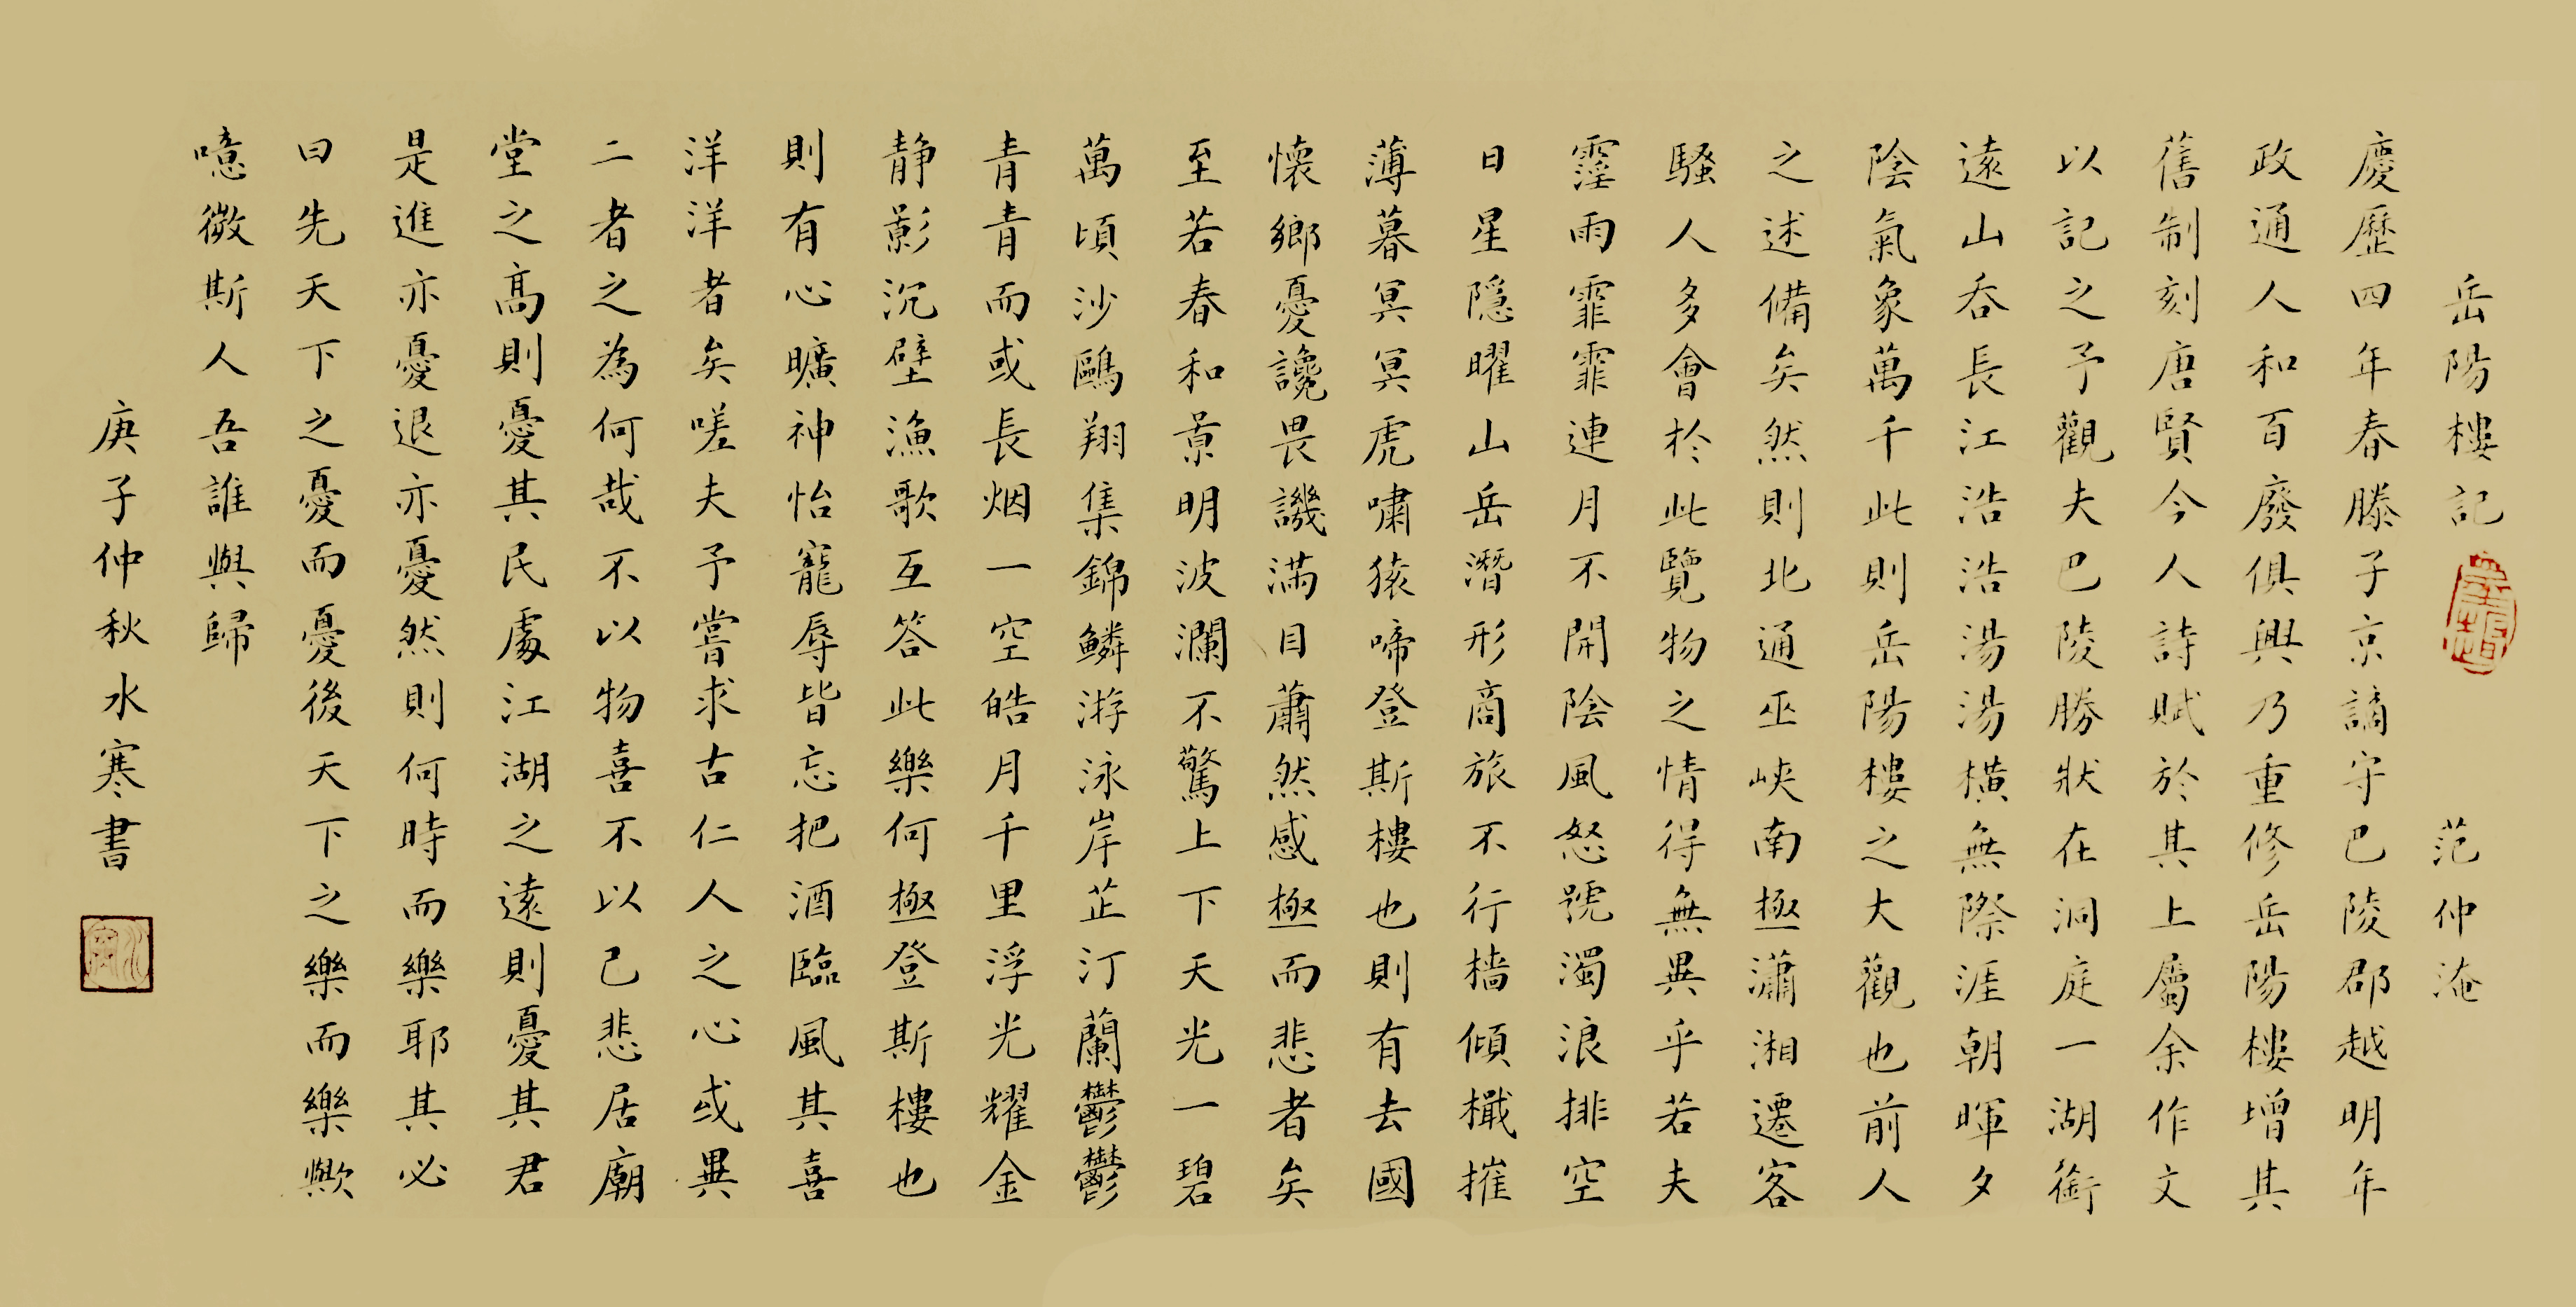 岳陽樓記 范仲淹
慶歷四年春滕子京謫守巴陵郡越明年
政通人和百廢俱興乃重修岳陽樓增其
舊制刻唐賢今人詩賦於其上屬余作文
以記之予觀夫巴陵勝狀在洞庭一湖銜
遠山吞長江浩浩湯湯橫無際涯朝暉夕
陰氣象萬千此則岳陽樓之大觀也前人
之述備矣然則北通巫峽南極瀟湘遷客
騷人多會於此覽物之情得無異乎若夫
霪雨霏霏連月不開陰風怒號濁浪排空
日星隱曜山岳潛形商旅不行檣傾檝摧
薄暮冥冥虎嘯猿啼登斯樓也則有去國
懷鄉憂讒畏譏滿目蕭然感極而悲者矣
至若春和景明波瀾不驚上下天光一碧
萬頃沙鷗翔集錦鱗游泳岸芷汀蘭鬱鬱
青青而或長烟一空皓月千里浮光耀金
靜影沉壁漁歌互答此樂何極登斯樓也
則有心曠神怡寵辱皆忘把酒臨風其喜
洋洋者矣嗟夫予嘗求古仁人之心或異
二者之為何哉不以物喜不以己悲居廟
堂之高則憂其民處江湖之遠則憂其君
是進亦憂退亦憂然則何時而樂耶其必
曰先天下之憂而憂後天下之樂而樂歟
噫微斯人吾誰與歸
庚子仲秋水寒書